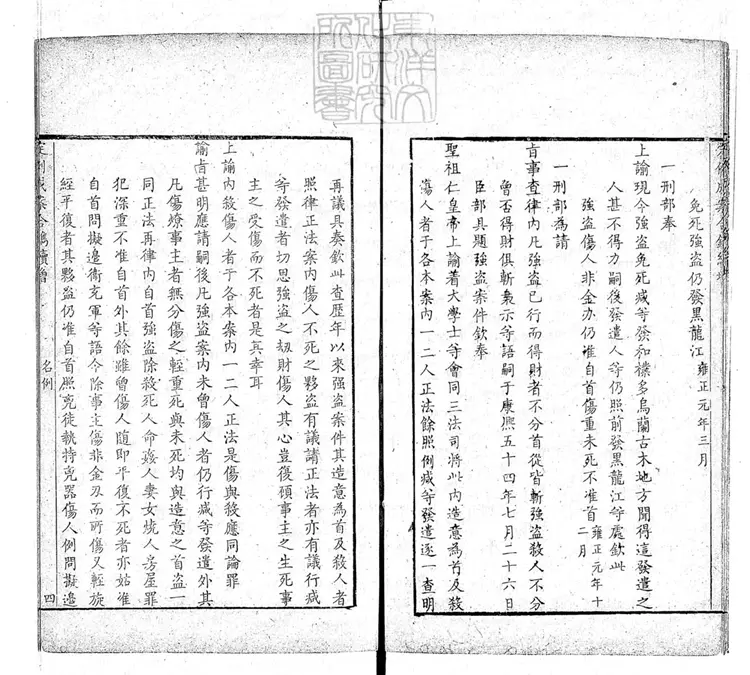 免死強盜仍發黑龍江 雍正元年三月
一刑部奉
上諭現今強盜免死减等發和襍多烏蘭古木地方聞得這發遣之
人甚不得力嗣後發遣人等仍照前發黑龍江等處欽此
強盜傷人非金刃仍准自首傷重未死不准首 雍正元年十二月
一刑部為請
旨事查律内凡強盜已行而得財者不分首從皆斬強盜殺人不分
曾否得財俱斬梟示等語嗣于康熙五十四年七月二十六日
臣部具題強盜案件欽奉
聖祖仁皇帝上諭着大學士等會同三法司將此内造意為首及殺
傷人者于各本案内一二人正法餘照例减等發遣逐一查明
再議具奏欽此查歷年以來强盜案件其造意為首及殺人者
照律正法案内傷人不死之夥盜有議請正法者亦有議行减
等發遣者切思強盜之刼財傷人其心豈復顧事主之生死事
主之受傷而不死者是其幸耳
上諭内殺傷人者于各本案内一二人正法是傷與殺應同論罪
諭旨甚明應請嗣後凡強盜案内未曾傷人者仍行减等發遣外其
凡傷燎事主者無分傷之輕重死與未死均與造意之首盜一
同正法再律内自首強盜除殺死人命姦人妻女燒人房屋罪
犯深重不准自首外其餘雖曾傷人随即平復不死者亦姑准
自首問擬邊衛充軍等語今除事主傷非金刃而所傷又輕旋
經平復者其夥盜仍准自首照兇徒執持兇器傷人例問擬邊
定例成案合鐫續增
名例
四
東洋文化研究所圖書